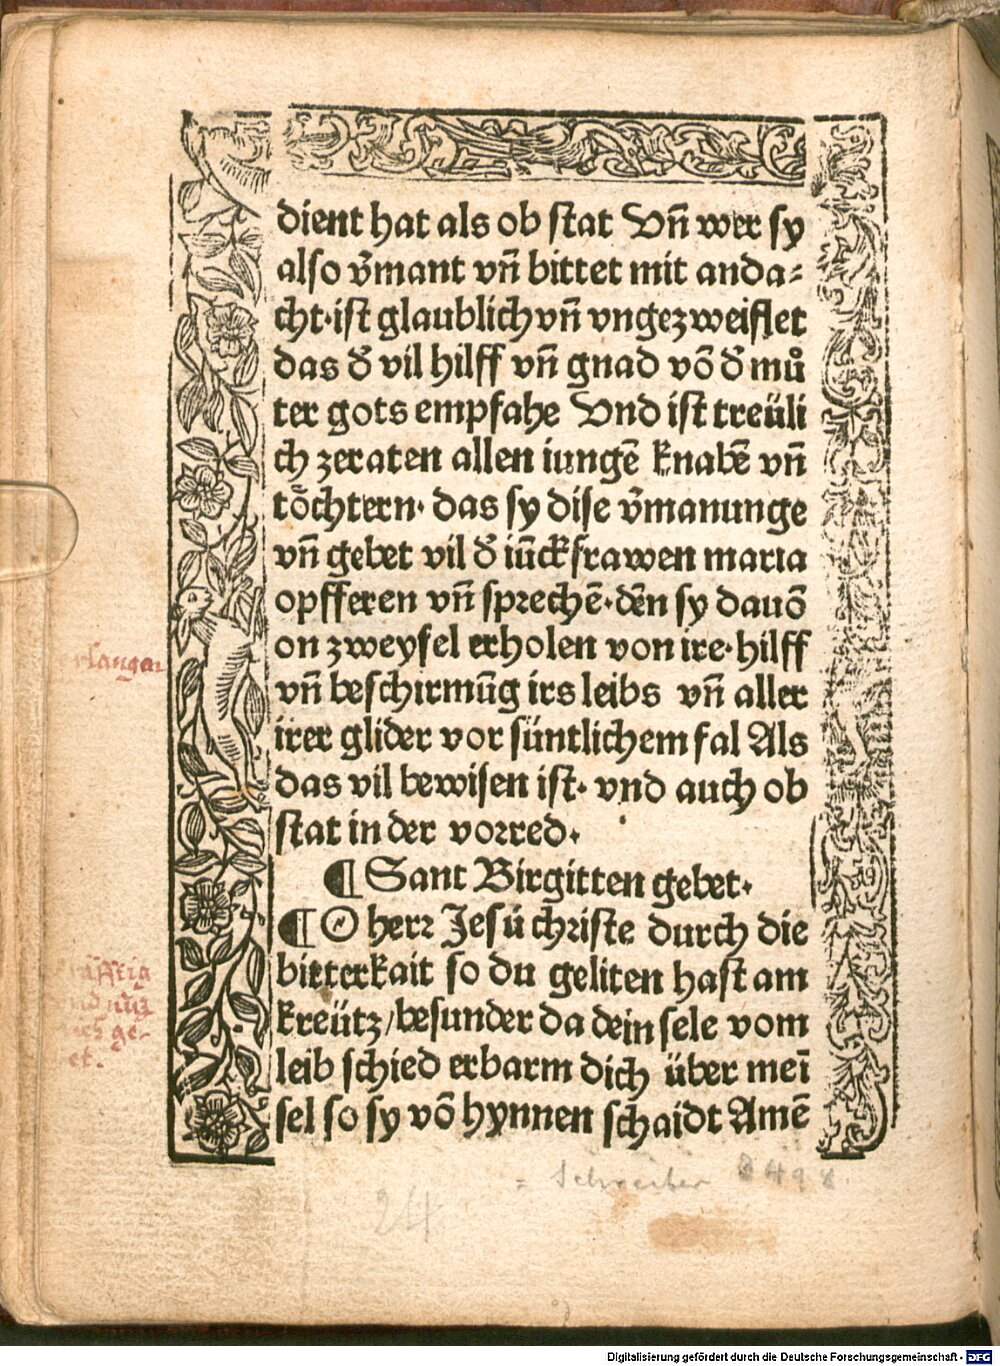 dient hat als ob stat Vñ wer sy
also v̄mant vñ bittet mit anda⸗
cht·ist glaublich vñ vngezweiflet
das d̄ vil hilff vñ gnad vō d̄ mů
ter gots empfahe Vnd ist treüli
ch zeraten allen iungē knabē vñ
tȫchtern· das sy dise v̄manunge
vñ gebet vil d̄ iūckfrawen maria
opfferen vñ sprechē·dēn sy dauō
on zweyfel erholen von ire·hilff
erlangen
vñ beschirmūg irs leibs vñ aller
irer glider vor süntlichem fal Als
das vil bewisen ist· vnd auch ob
stat in der vorred·
¶ Sant Birgitten gebet·
¶ O herr Jesu christe durch die
bitterkait so du geliten hast am
kreütz/besunder da dein sele vom
leib schied erbarm dich über meī
sel so sy vō hynnen schaidt Amē
ge-
et.
= Schreiber
24
Digitalisierung gefördert durch die Deutsche Forschungsgemeinschaft - DFG